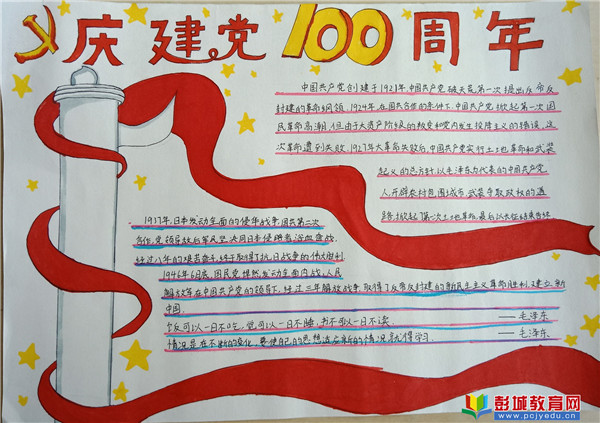 庆建党100周年
中国共产党创建于1921年.中国共产党破天荒第一次提出反帝反
封建的革命纲领.1924年,在国共合作的条件下,中国共产党掀起第一次国
民革命高潮.但由于大资产阶级的叛变和党内发生投降主义的错误,这
次革命遭到失败.1927年大革命失败后,中国共产党实行土地革命和武装
起义的总方针.以毛泽东为代表的中国共产党
人,开辟农村包围城市,武装夺取政权的道
路
1937年,日本发动全面的侵华战争.国共第二次
合作.党领导敌后军民坚决同日本侵略者浴血奋战.
经过八年的艰苦
抗日战争的伟大胜利.
1946年6月底,国民党悍然发动全面内战,人民
解放军在中国共产党的领导下,经过三年解放战争,取得了反帝反封建的新民主主义革命胜利,建立新
中国.
饭可以一日不吃,觉可以一日不睡,书不可以一日不读.——毛泽东
情况是在不断的变化,要使自己的思想适应新的情况,就得学习.——毛泽东
彭城教育网
www.pcjyedu.cn